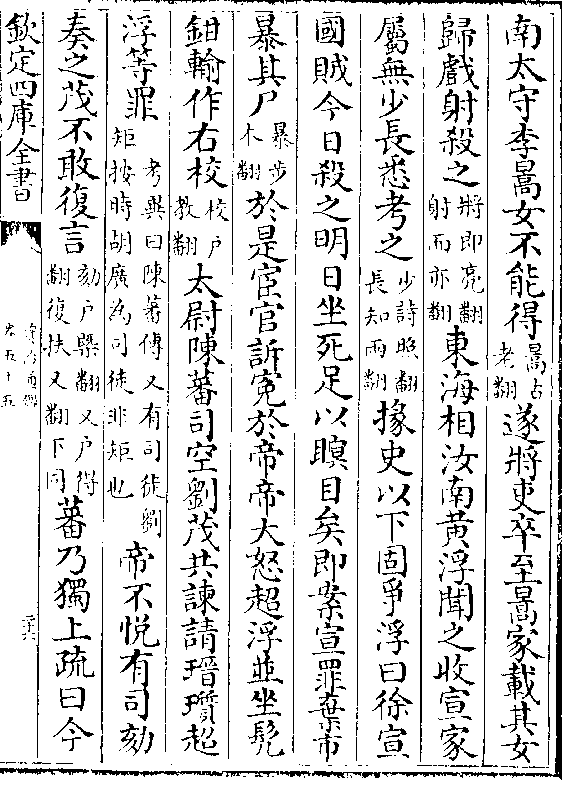 南太守李暠女不能得暠古老翻遂將吏卒至暠家載其女
歸戲射殺之將即亮翻射而亦翻東海相汝南黄浮聞之收宣家
屬無少長悉考之少詩照翻長知兩翻掾史以下固爭浮曰徐宣
國賊今日殺之明日坐死足以瞑目矣即案宣罪棄市
暴其尸暴步木翻於是宦官訴寃於帝帝大怒超浮並坐髠
鉗輸作右校校户教翻太尉陳蕃司空劉茂共諫請瑨瓆超
浮等罪考異曰陳蕃傳又有司徒劉矩按時胡廣為司徒非矩也帝不悦有司劾
奏之茂不敢復言劾户槩翻又户得翻復扶又翻下同蕃乃獨上疏曰今
欽定四庫全書
資治通鑑
卷五十五